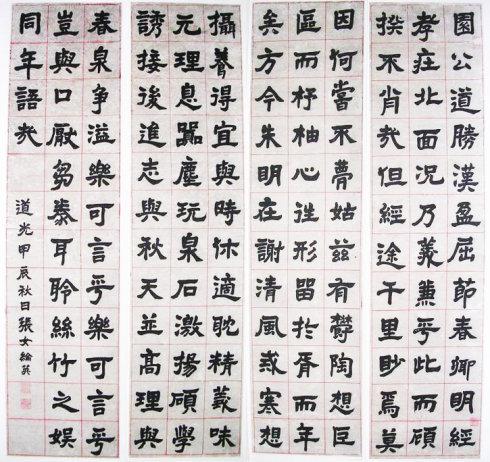 園公道勝漢盈屈節春卿明經
孝莊北面況乃義兼乎此而顧
揆不肖哉但經途千里眇焉莫
因何嘗不夢姑茲有鬱陶想巨
區而杼柚心往形留於胥而年
矣方今朱明在謝清風戒寒想
攝養得宜與時休適耽精義味
元理息囂塵玩泉石激揚碩學
誘接後進志與秋天並高理與
春泉爭溢樂可言乎樂可言乎
豈與口厭芻豢耳聆絲竹之娛
同年語哉
道光甲辰秋日張女綸英